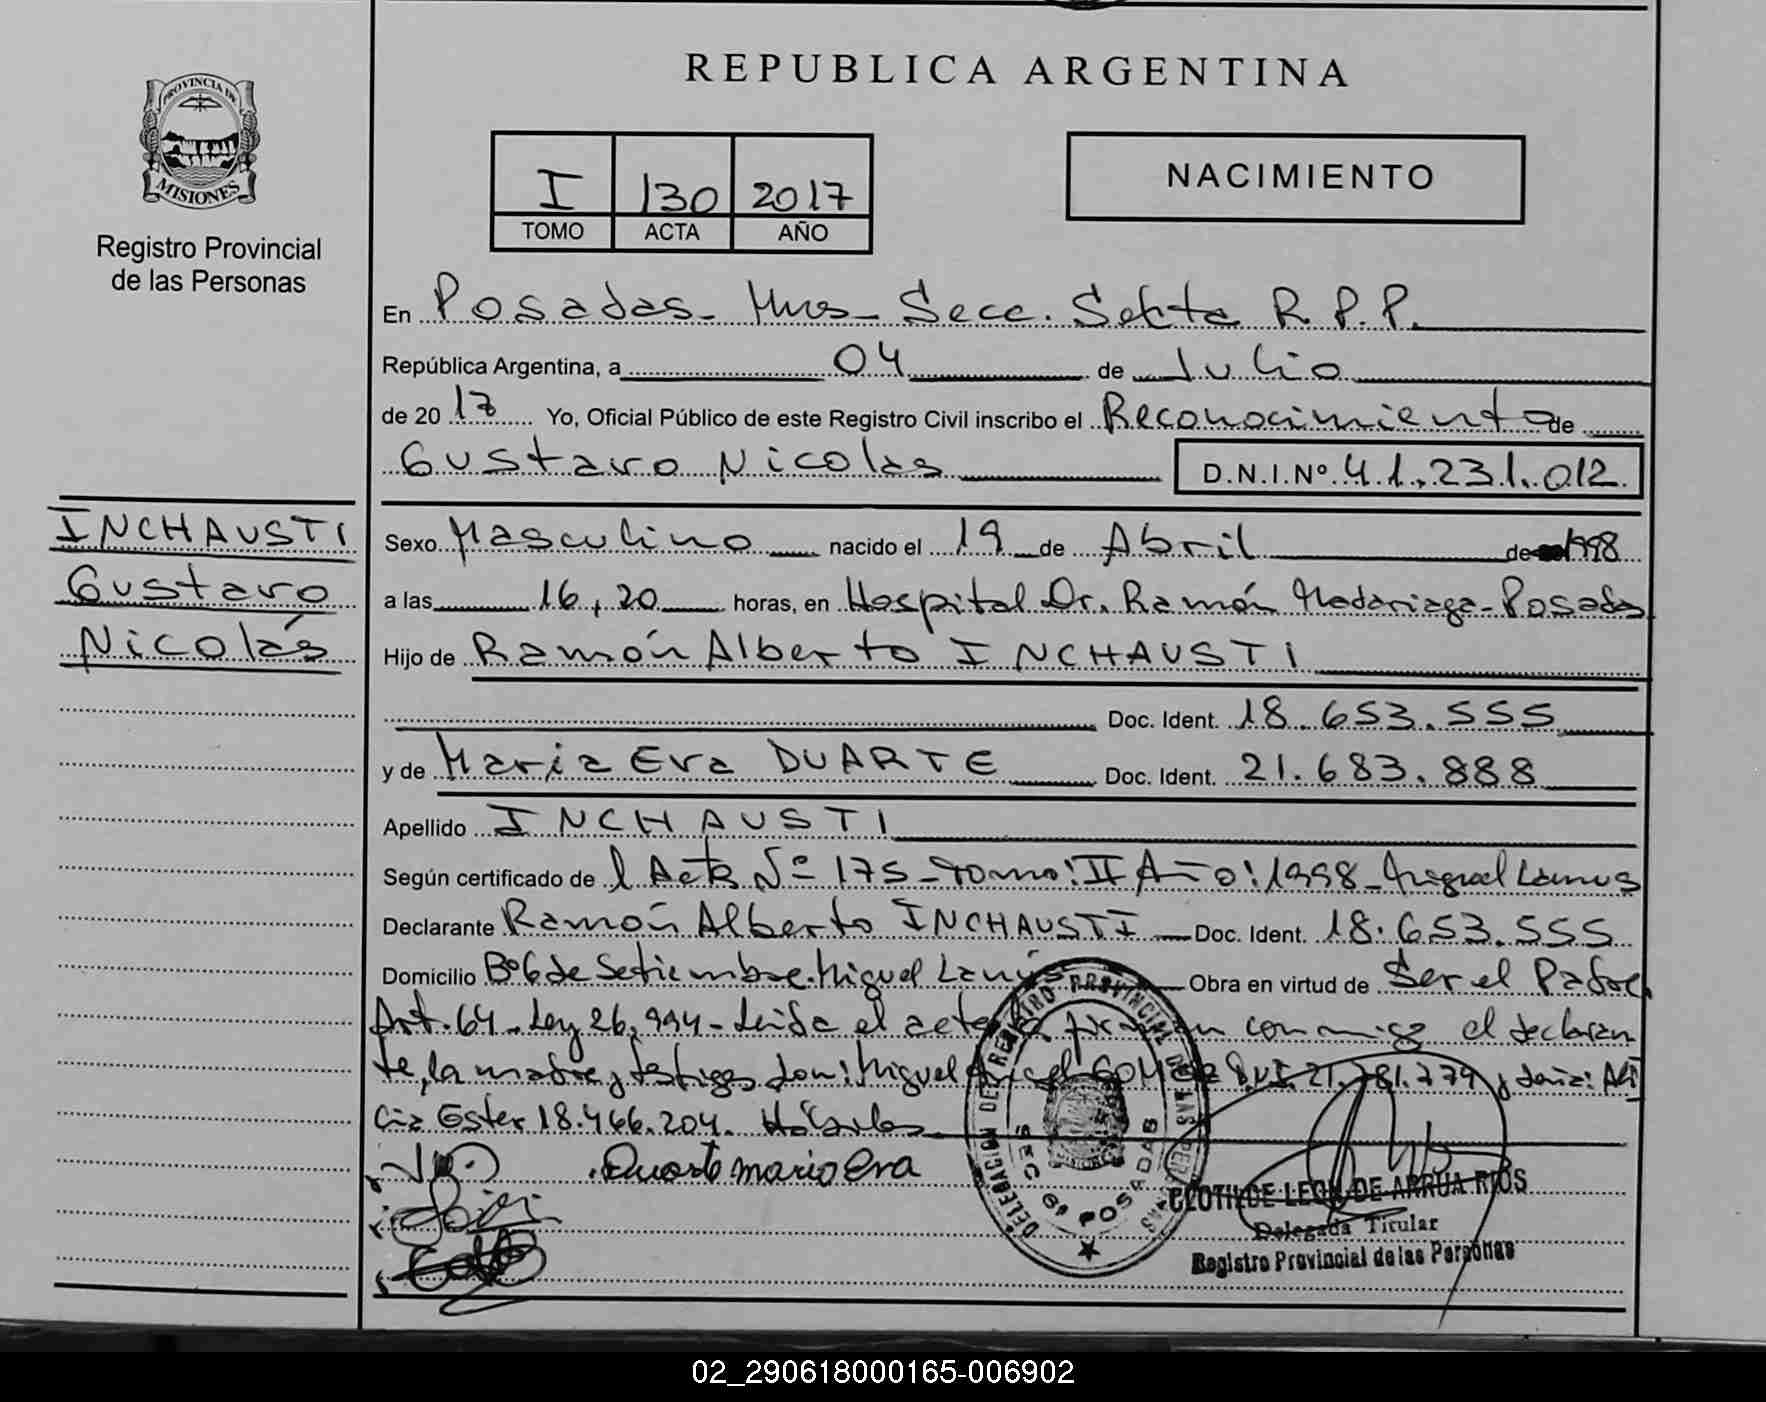 REPUBLICA ARGENTINA
PROVINCIA DE
MISIONES
Registro Provincial
de las Personas
I 130 2017
TOMO ACTA AÑO
NACIMIENTO
En Posadas - Mns - Secc. Sexta R.P.P.
República Argentina, a 04 de Julio
de 20 17 Yo, Oficial Público de este Registro Civil inscribo el Reconocimiento de
Gustavo Nicolas D.N.I.Nº 41.231.012
INCHAUSTI
Gustavo
Nicolás
Sexo Masculino nacido el 19 de Abril de 1998
a las 16,20 horas, en Hospital Dr. Ramón Madariaga - Posadas
Hijo de Ramón Alberto INCHAUSTI
Doc. Ident. 18.653.555
y de Maria Eva DUARTE Doc. Ident. 21.683.888
Apellido INCHAUSTI
Según certificado de l Acta Nº 175 - Tomo: II Año: 1998 - Miguel Lanus
Declarante Ramón Alberto INCHAUSTI Doc. Ident. 18.653.555
Domicilio Bº 6 de Setiembre. Miguel Lanús Obra en virtud de Ser el Padre
Art. 64 - Ley 26.994 - Leida el acta la firman conmigo el declaran
te, la madre y testigos don: Miguel Angel GOMEZ D.N.I. 21.781.779 y doña: Ali
cia Ester 18.466.204.
Duarte maria eva
DELEGACION DEL REGISTRO PROVINCIAL DE LAS PERSONAS
SEC 6ª POSADAS
CLOTILDE LEON DE ARRUA RIOS
Delegada Titular
Registro Provincial de las Personas
02_290618000165-006902